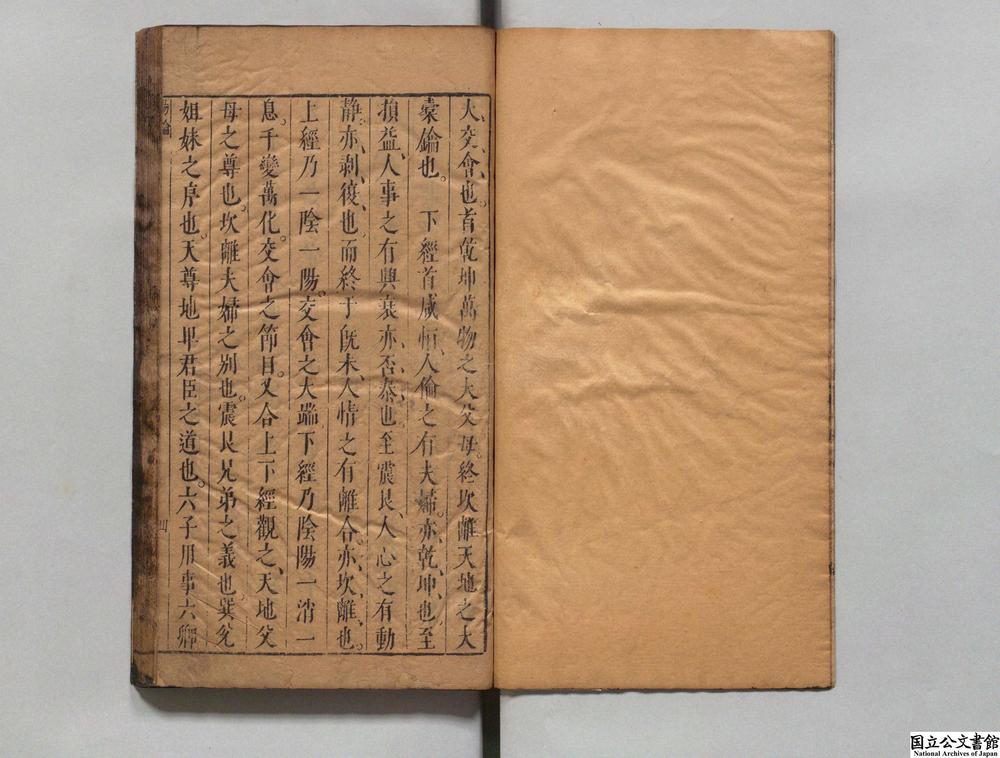 大交會也首乾坤萬物之大父母終坎離天地之大
橐鑰也。 下經首咸恒人倫之有夫婦。亦乾坤也至
損益人事之有興衰亦否泰也至震艮人心之有動
静亦剥復也而終于既未人情之有離合亦坎離也。
上經乃一陰一陽。交會之大端下經乃陰陽一消一
息。千變萬化。交會之節目。又合上下經觀之、天地父
母之尊也。坎離夫婦之别也。震艮兄弟之義也。巽兌
姐妹之序也。天尊地卑君臣之道也。六子用事六卿
四
国立公文書館
National Archives of Japan